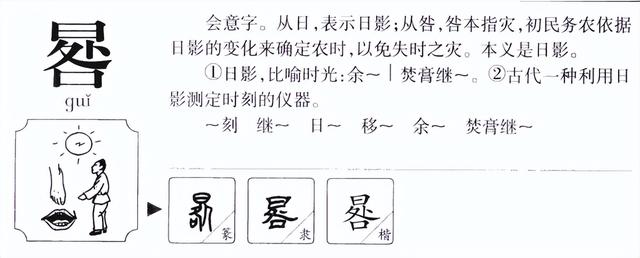 晷
guǐ
会意字。从日,表示日影;从咎,咎本指灾,初民务农依据
日影的变化来确定农时,以免失时之灾。本义是日影。
①日影,比喻时光:余～｜焚膏继～。②古代一种利用日
影测定时刻的仪器。
～刻 继～ 日～ 移～ 余～ 焚膏继～
晷 篆
晷 隶
晷 楷